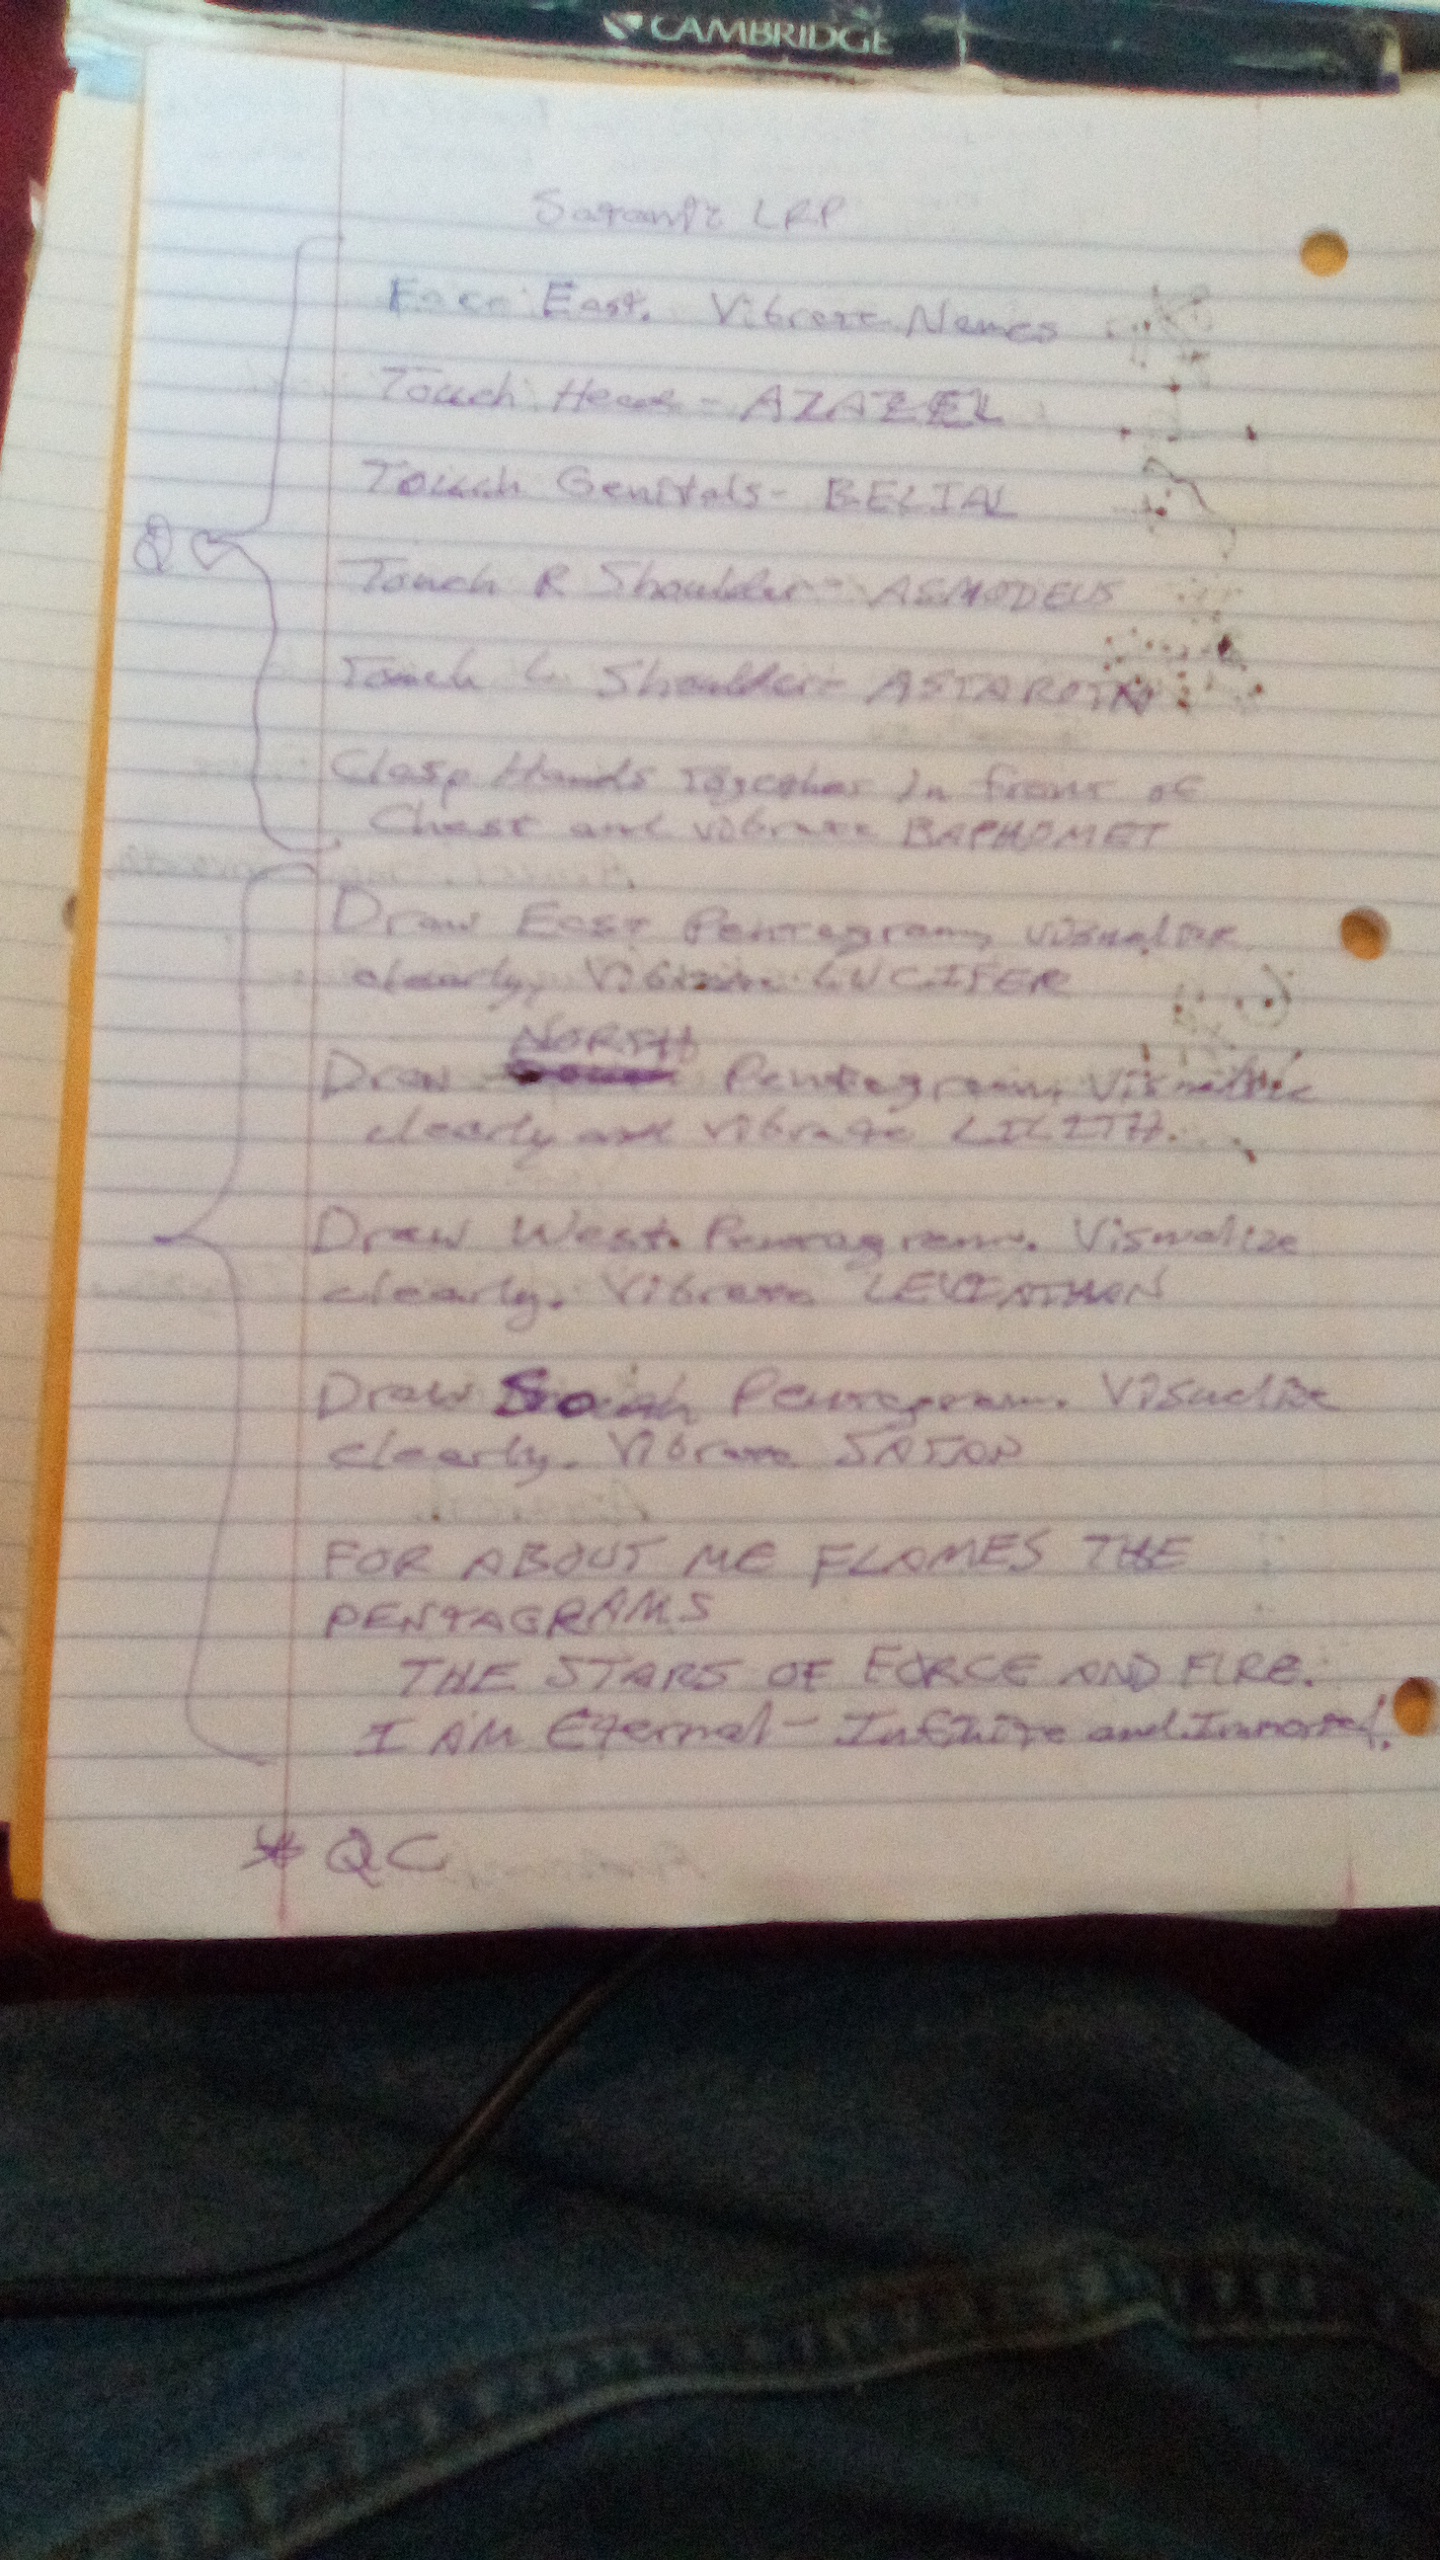 CAMBRIDGE
Satanic LRP
Face East. Vibrate Names
Touch Head - AZAZEL
Touch Genitals - BELIAL
QC
Touch R Shoulder - ASMODEUS
Touch L Shoulder - ASTAROTH
Clasp Hands Together in front of
Chest and vibrate BAPHOMET
Draw East Pentagram, visualize
clearly, Vibrate LUCIFER
NORTH
Draw Pentagram, Visualize
clearly and vibrate LILITH.
Draw West Pentagram. Visualize
clearly. Vibrate LEVIATHAN
Draw South Pentagram. Visualize
clearly. Vibrate SATAN
FOR ABOUT ME FLAMES THE
PENTAGRAMS
THE STARS OF FORCE AND FIRE.
I AM Eternal - Infinite and Immortal.
* QC